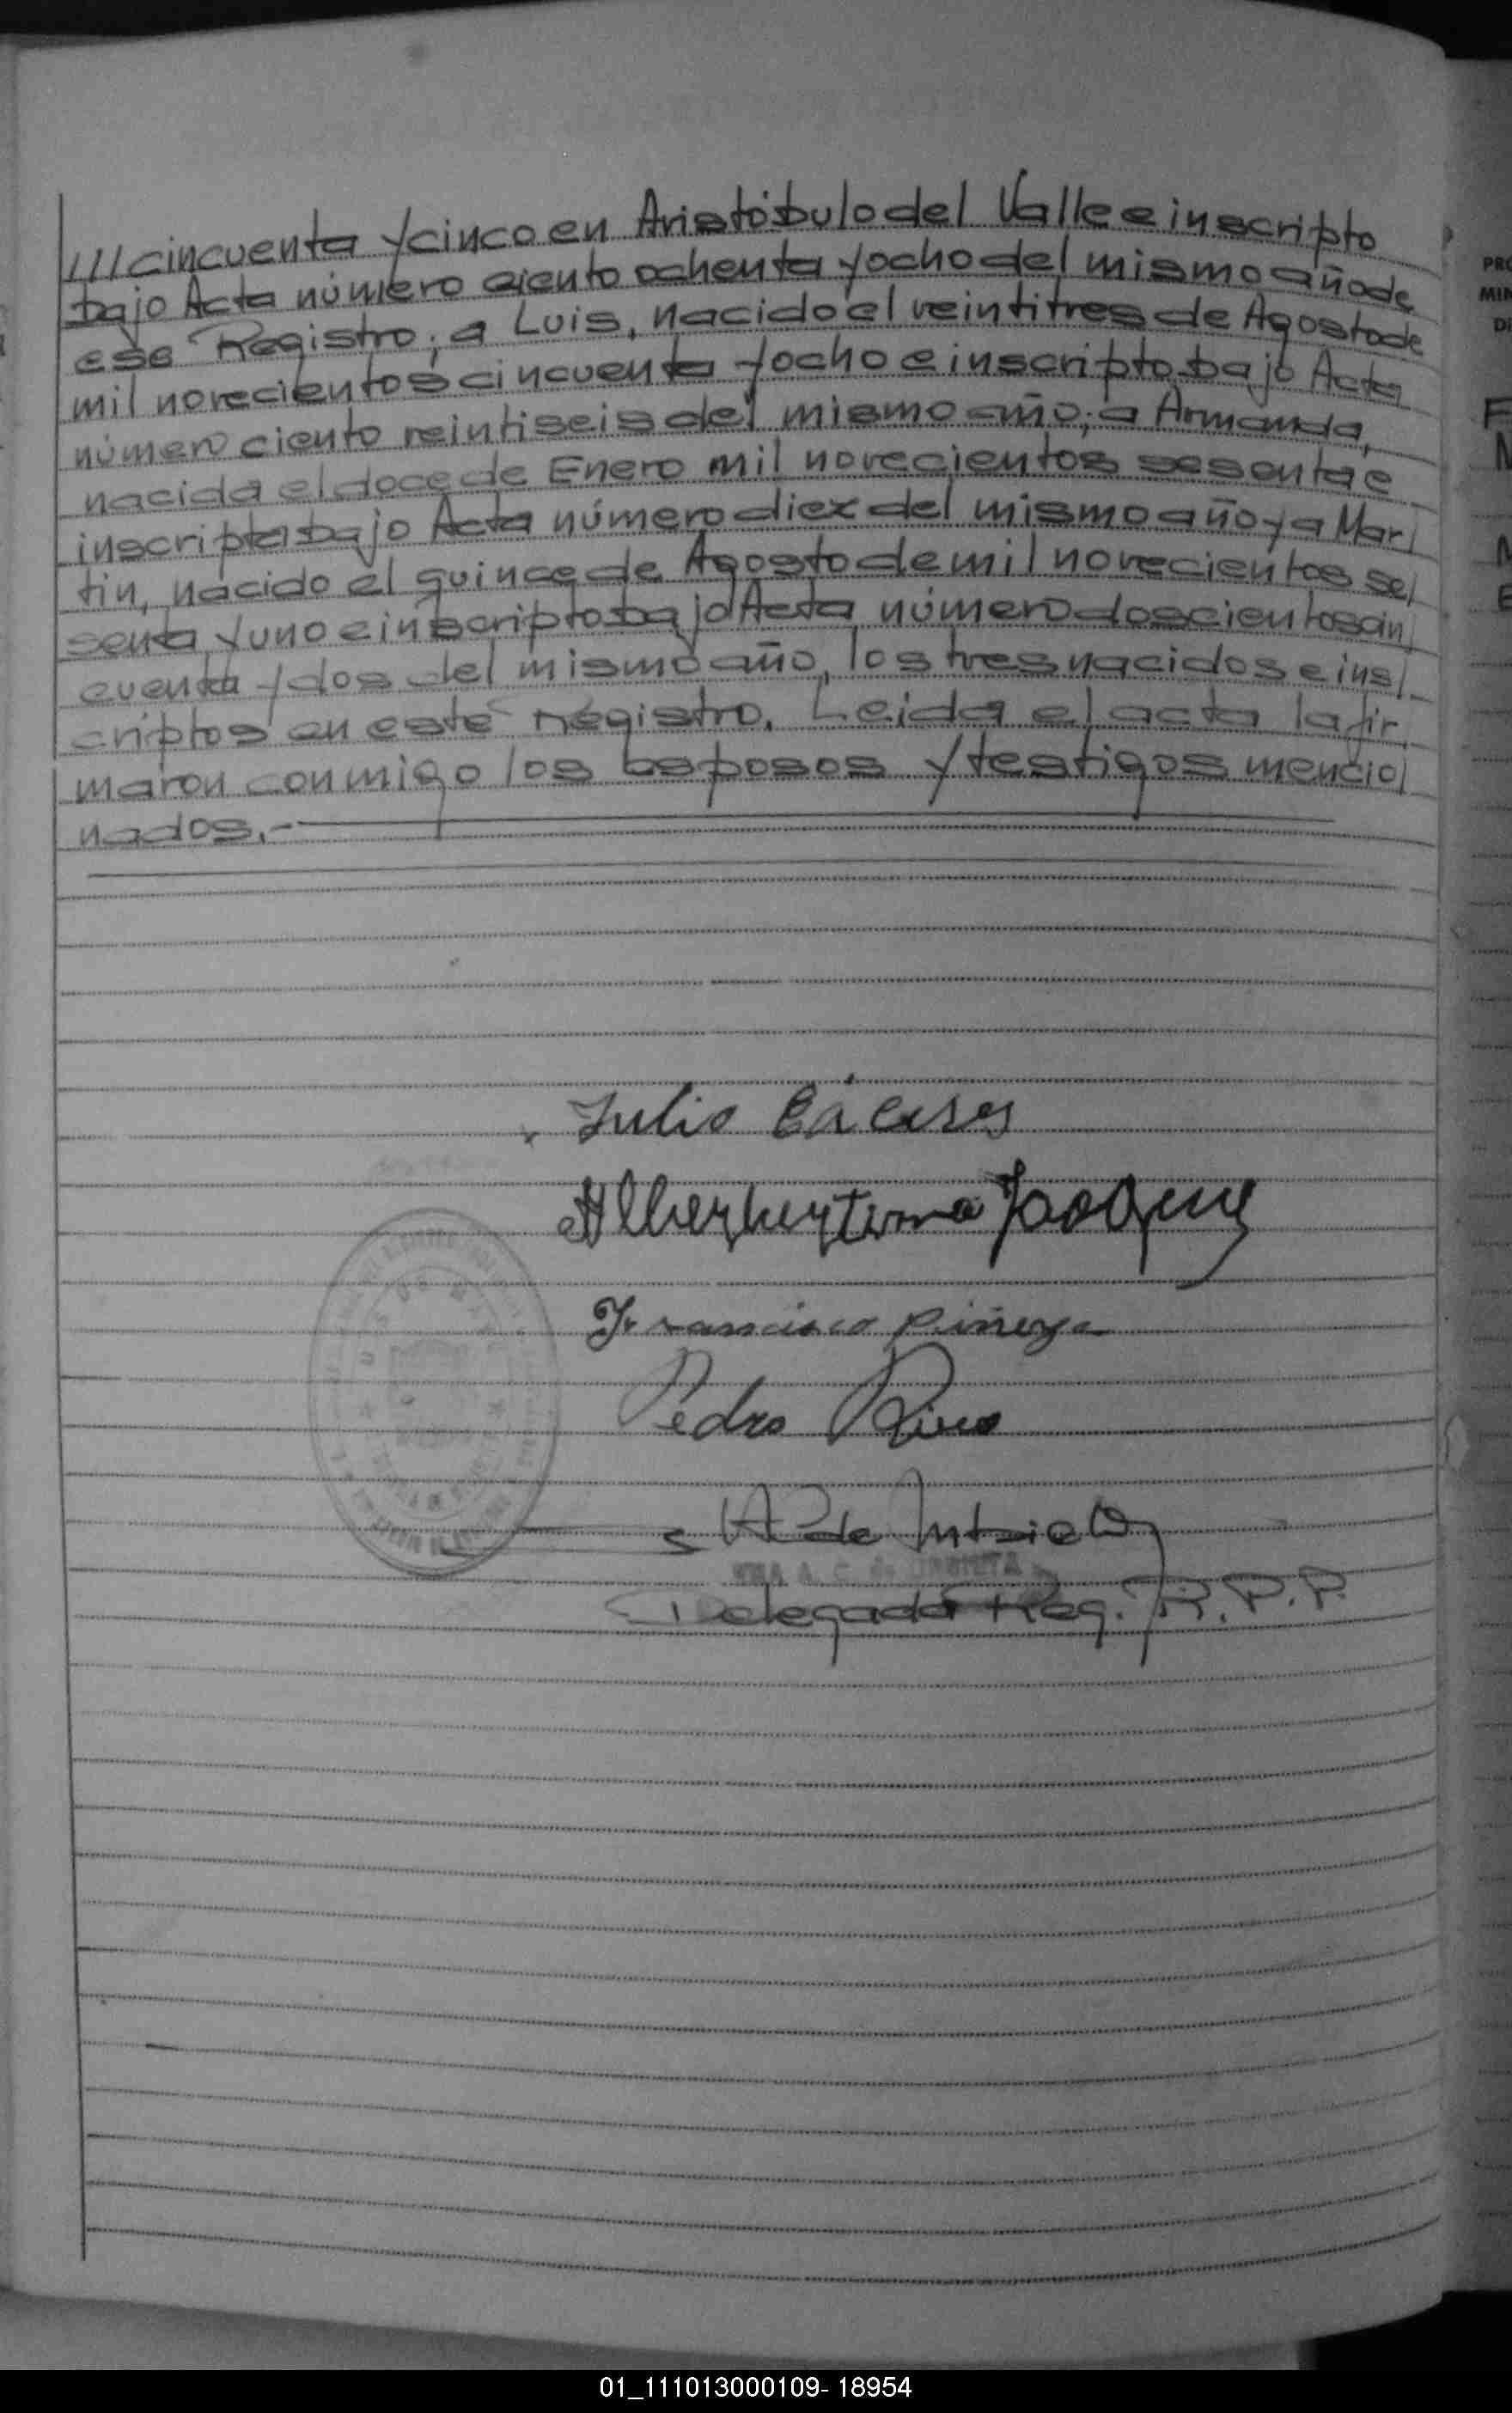 ///cincuenta y cinco en Aristóbulo del Valle e inscripto
bajo Acta número ciento ochenta y ocho del mismo año de
ese Registro; a Luis, nacido el veintitres de Agosto de
mil novecientos cincuenta y ocho e inscripto bajo Acta
número ciento veintiseis del mismo año; a Armanda,
nacida el doce de Enero mil novecientos sesenta e
inscripta bajo Acta número diez del mismo año y a Mar/
tin, nacido el quince de Agosto de mil novecientos se/
senta y uno e inscripto bajo Acta número doscientos cin/
cuenta y dos del mismo año, los tres nacidos e ins/
criptos en este Registro. Leida el acta la fir
maron conmigo los esposos y testigos mencio/
nados.-
Julio Cáceres
Francisco Piñeyro
Pedro
de
Delegada Reg. R.P.P.
PRO
MIN
DI
01_111013000109- 18954